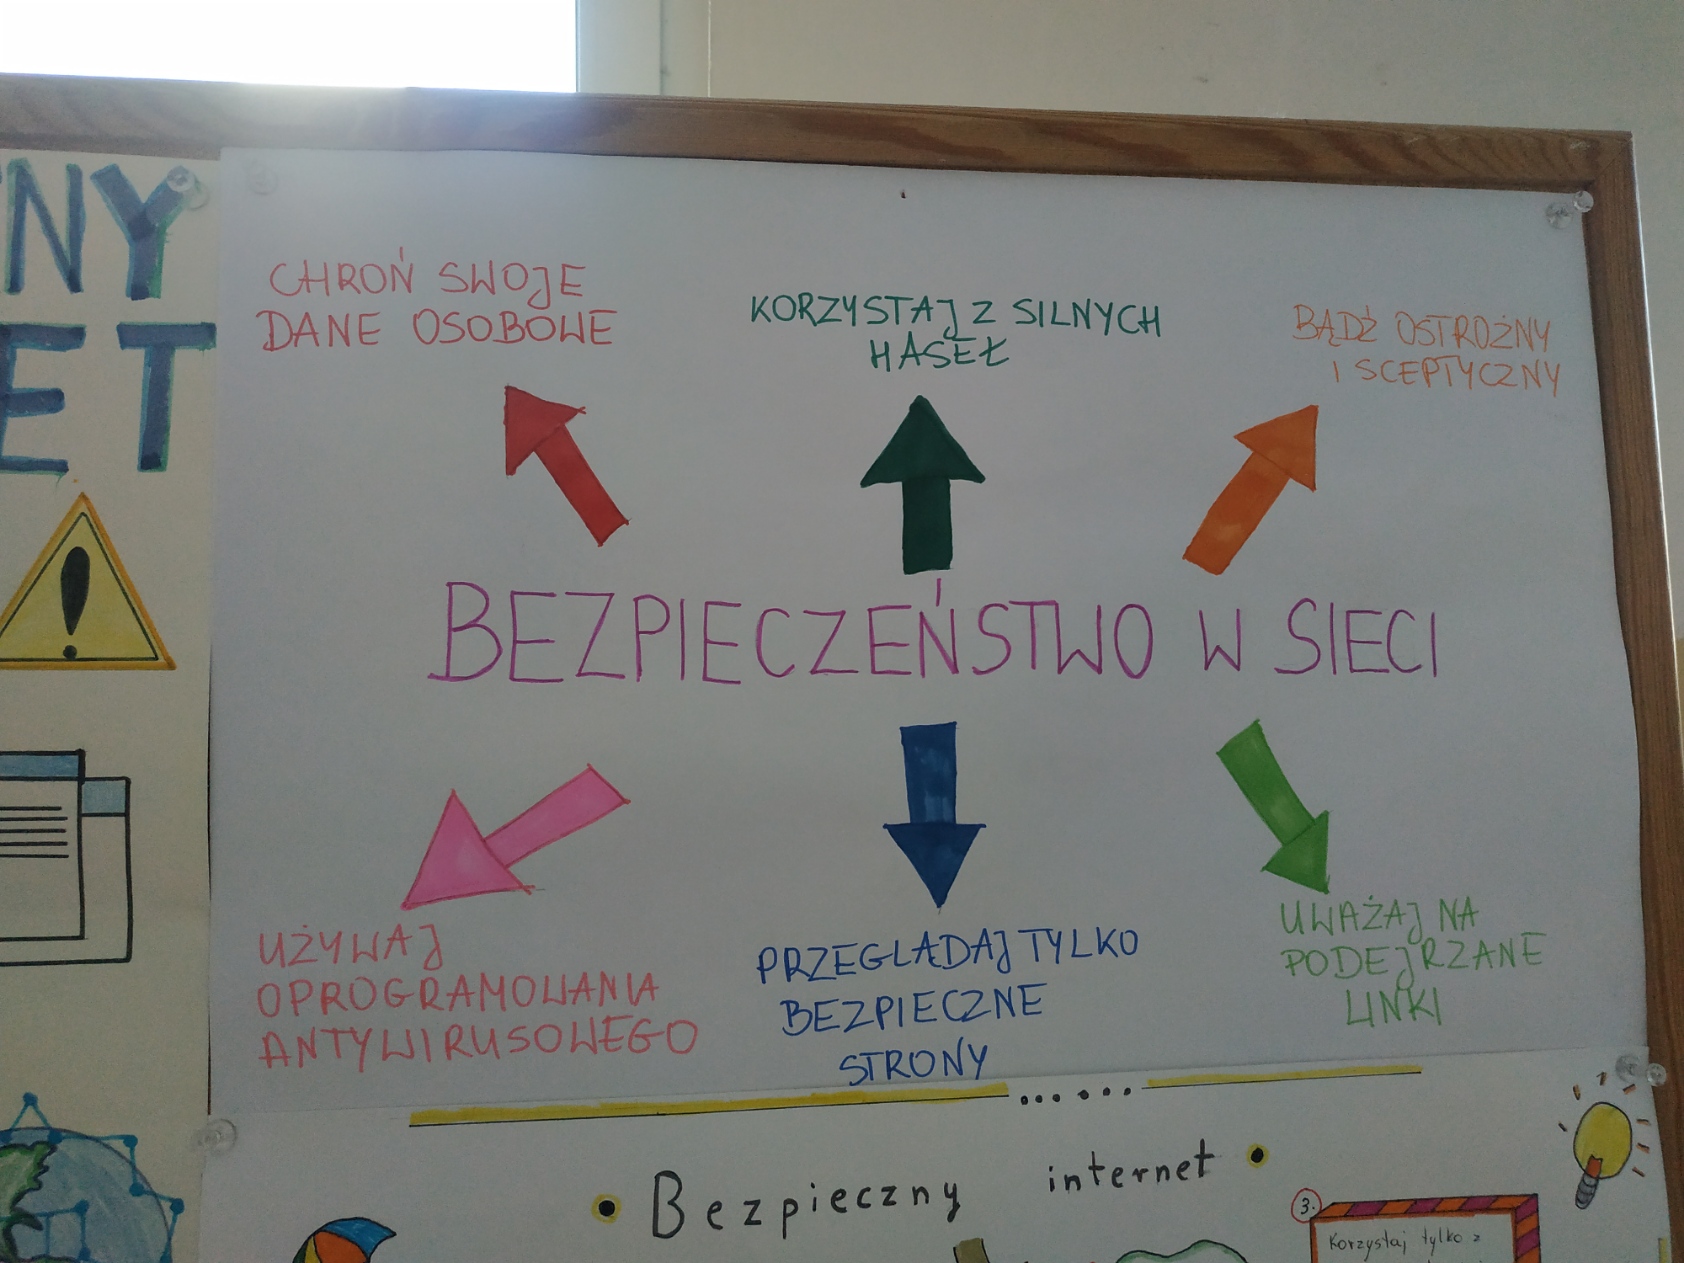 NY
ET
CHROŃ SWOJE
DANE OSOBOWE
KORZYSTAJ Z SILNYCH
HASEŁ
BĄDŹ OSTROŻNY
I SCEPTYCZNY
BEZPIECZEŃSTWO W SIECI
UŻYWAJ
OPROGRAMOWANIA
ANTYWIRUSOWEGO
PRZEGLĄDAJ TYLKO
BEZPIECZNE
STRONY
UWAŻAJ NA
PODEJRZANE
LINKI
Bezpieczny internet
3.
Korzystaj tylko z